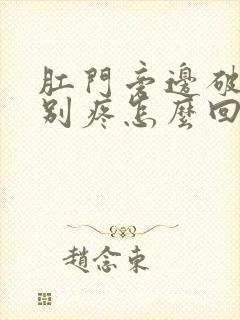 肛門旁邊破
別疼怎麼回
趙念東